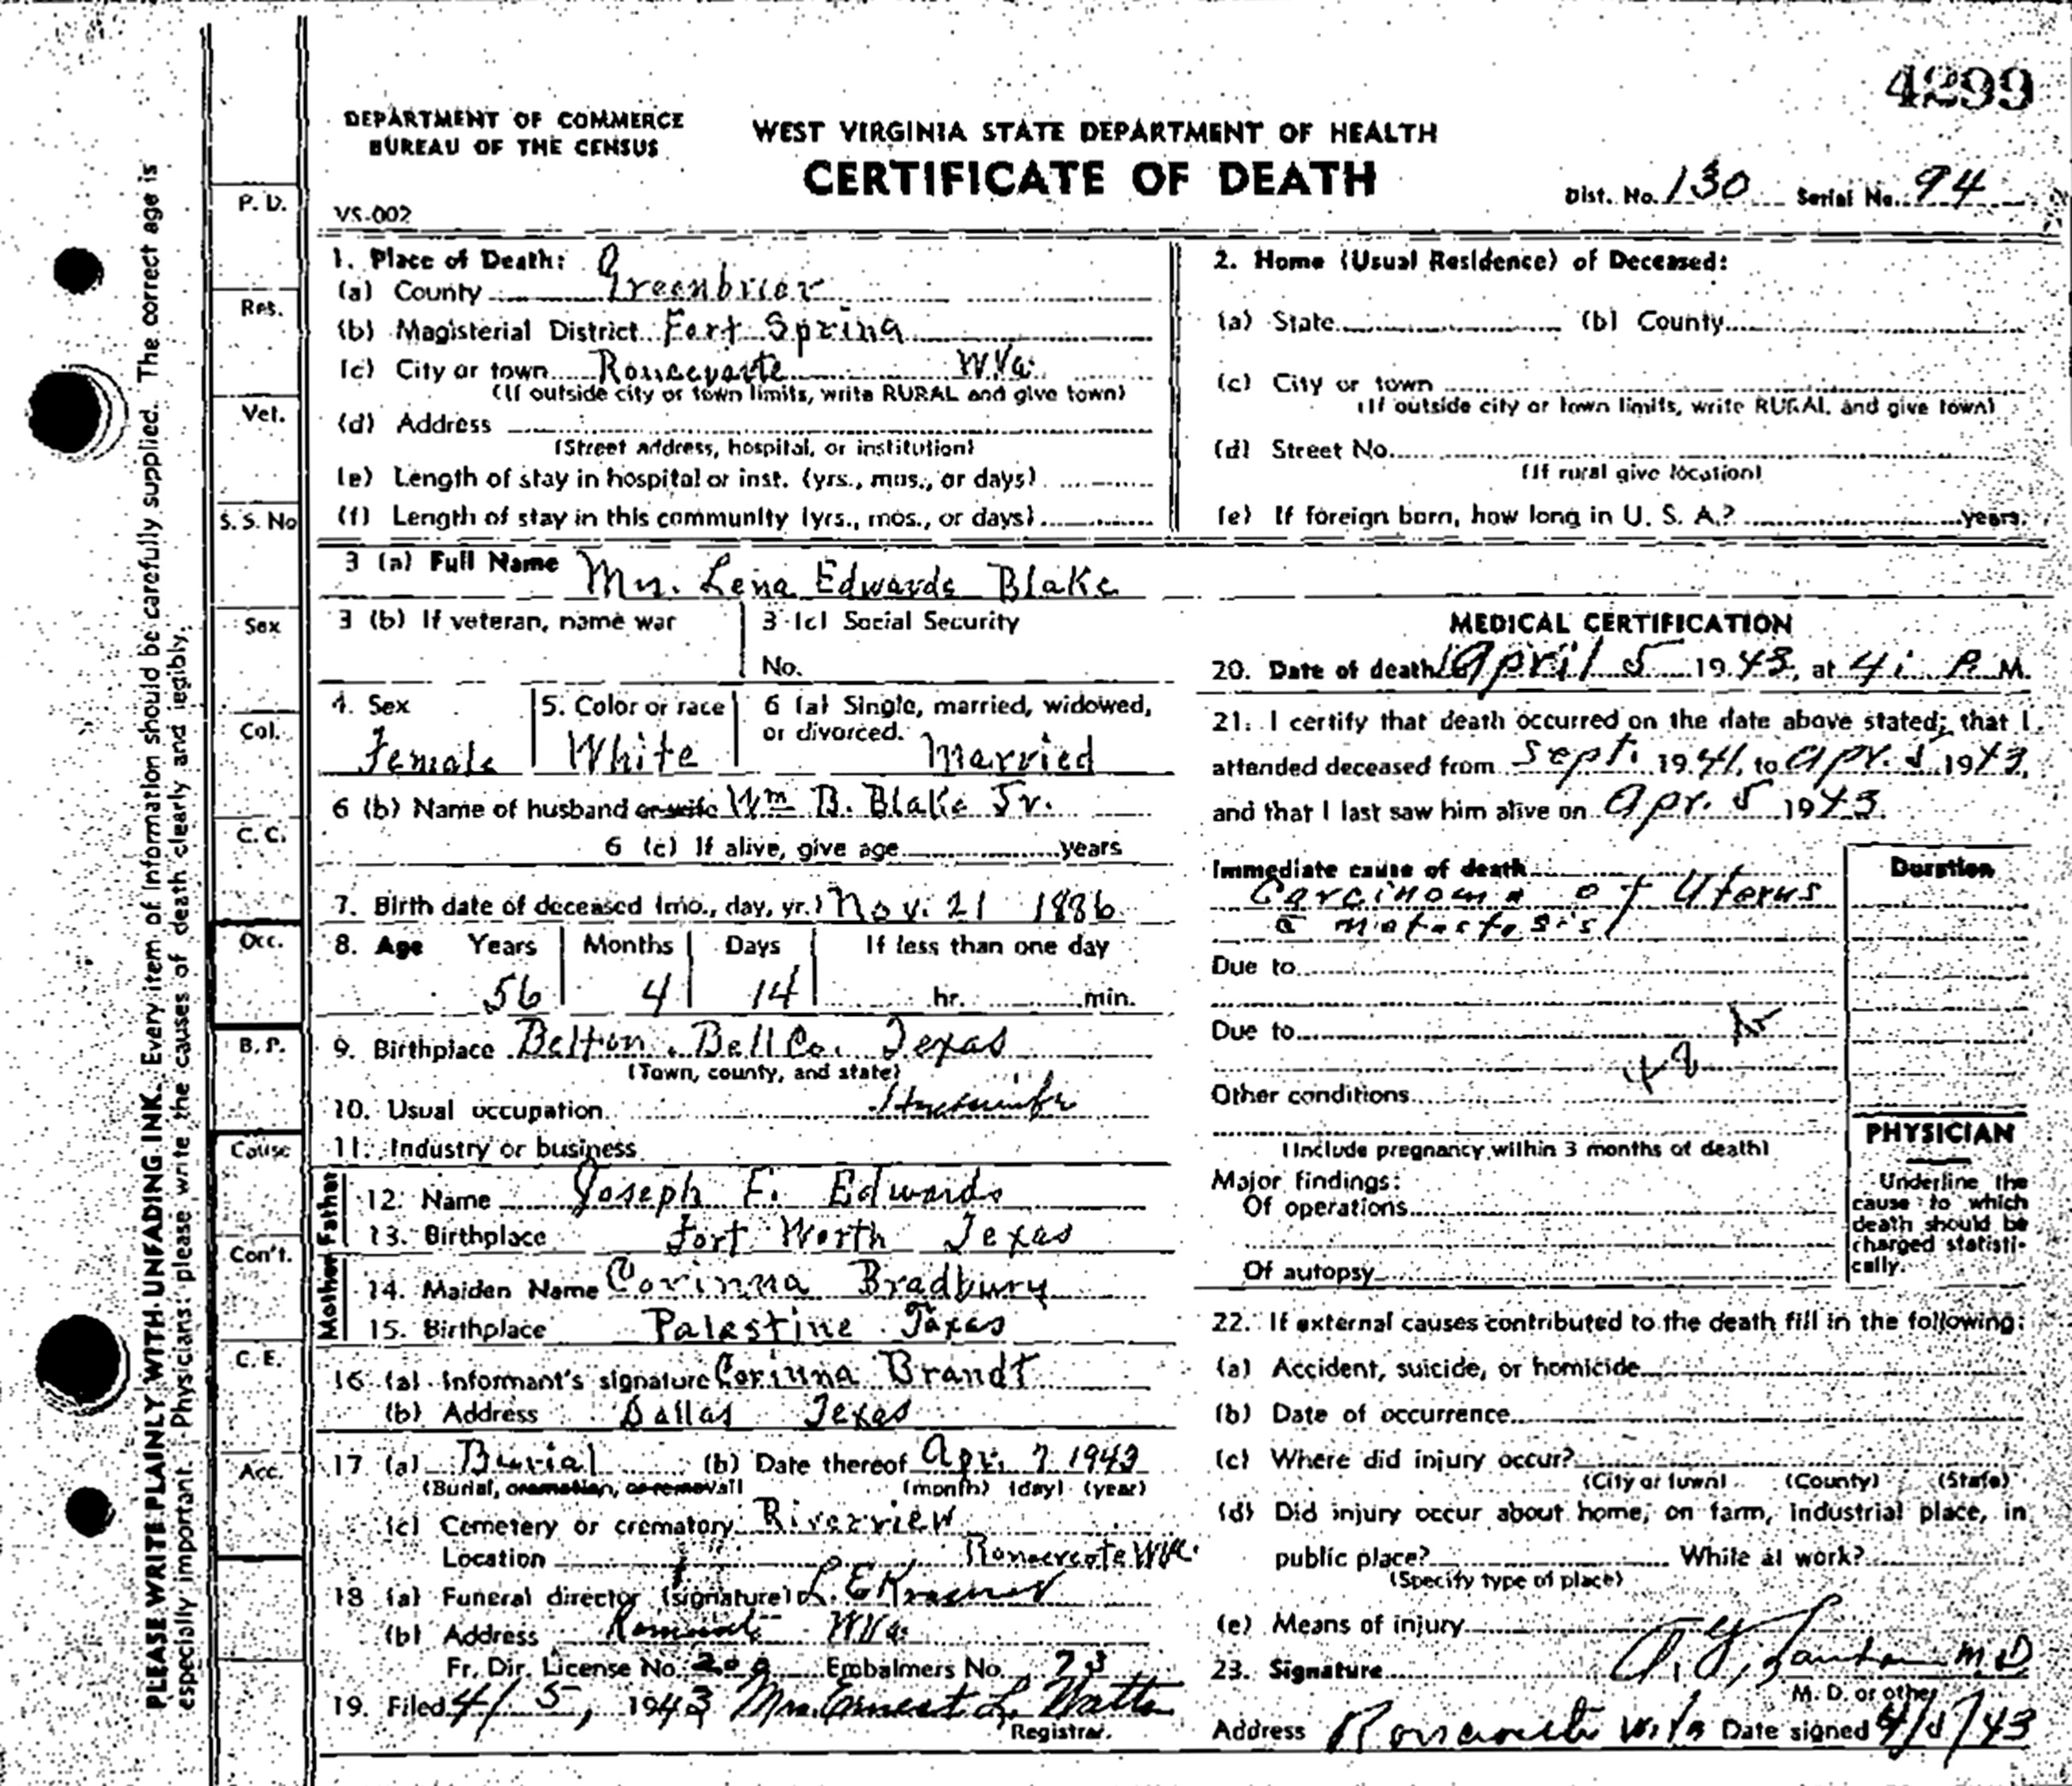 4299
DEPARTMENT OF COMMERCE
BUREAU OF THE CENSUS
WEST VIRGINIA STATE DEPARTMENT OF HEALTH
CERTIFICATE OF DEATH
VS-002
Dist. No. 130 Serial No. 94
PLEASE WRITE PLAINLY WITH UNFADING INK. Every item of information should be carefully supplied. The correct age is
especially important. Physicians please write the causes of death clearly and legibly.
P. D.
Res.
Vet.
S. S. No
Sex
Col.
C. C.
Occ.
B. P.
Cause
Con't.
C. E.
Acc.
1. Place of Death:
(a) County Greenbrier
(b) Magisterial District Fort Spring
(c) City or town Ronceverte W.Va.
(If outside city or town limits, write RURAL and give town)
(d) Address
(Street address, hospital, or institution)
(e) Length of stay in hospital or inst. (yrs., mos., or days)
(f) Length of stay in this community (yrs., mos., or days)
2. Home (Usual Residence) of Deceased:
(a) State (b) County
(c) City or town
(If outside city or town limits, write RURAL and give town)
(d) Street No.
(If rural give location)
(e) If foreign born, how long in U. S. A.? years.
3 (a) Full Name Mrs. Lena Edwards Blake
3 (b) If veteran, name war
3 (c) Social Security
No.
4. Sex
Female
5. Color or race
White
6 (a) Single, married, widowed,
or divorced.
Married
6 (b) Name of husband or wife Wm B. Blake Jr.
6 (c) If alive, give age years
7. Birth date of deceased (mo., day, yr.) Nov. 21 1886
8. Age Years Months Days If less than one day
56 4 14 hr. min.
9. Birthplace Belton, Bell Co. Texas
(Town, county, and state)
10. Usual occupation Housewife
11. Industry or business
Father
12. Name Joseph F. Edwards
13. Birthplace Fort Worth Texas
Mother
14. Maiden Name Corinna Bradbury
15. Birthplace Palestine Texas
16 (a) Informant's signature Corinna Brandt
(b) Address Dallas Texas
17 (a) Burial (b) Date thereof Apr. 7 1943
(Burial, cremation, or removal) (month) (day) (year)
(c) Cemetery or crematory Riverview
Location Ronceverte W.Va.
18 (a) Funeral director (signature) L. E.
(b) Address Ronceverte W.Va.
Fr. Dir. License No. 209 Embalmers No. 73
19. Filed 4/5, 1943 Mrs. Ernest L. Watts
Registrar.
MEDICAL CERTIFICATION
20. Date of death April 5 1943, at 4: P. M.
21. I certify that death occurred on the date above stated; that I
attended deceased from Sept. 1941, to Apr. 5 1943,
and that I last saw him alive on Apr. 5 1943.
Immediate cause of death
Carcinoma of Uterus
c̄ metastasis
Duration
Due to
Due to
48
Other conditions
(Include pregnancy within 3 months of death)
Major findings:
Of operations
Of autopsy
PHYSICIAN
Underline the
cause to which
death should be
charged statisti-
cally.
22. If external causes contributed to the death fill in the following:
(a) Accident, suicide, or homicide
(b) Date of occurrence
(c) Where did injury occur?
(City or town) (County) (State)
(d) Did injury occur about home, on farm, industrial place, in
public place? While at work?
(Specify type of place)
(e) Means of injury
23. Signature M.D
M. D. or other
Address Ronceverte W.Va Date signed 4/5/43